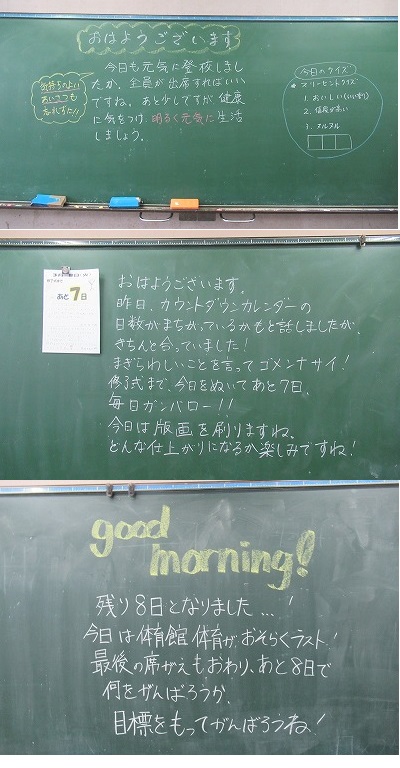 おはようございます
今日も元気に登校しまし
たか。全員が出席すればいい
ですね。あと少しですが健康
に気をつけ明るく元気に生活
しましょう。
気持ちのよい
あいさつも
忘れずに!!
今日のクイズ
スリーヒントクイズ
1. おいしい
2. 値段が高い
3. ヌルヌル
あと7日
おはようございます。
昨日、カウントダウンカレンダーの
日数がまちがっているかもと話しましたが、
きちんと合っていました!
まぎらわしいことを言ってゴメンナサイ!
修了式まで、今日をぬいてあと7日、
毎日ガンバロー!!
今日は版画を刷りますね。
どんな仕上がりになるか楽しみですね!
good
morning!
残り8日となりました…!
今日は体育館体育がおそらくラスト!
最後の席がえもおわり、あと8日で
何をがんばろうか、
目標をもってがんばろうね!